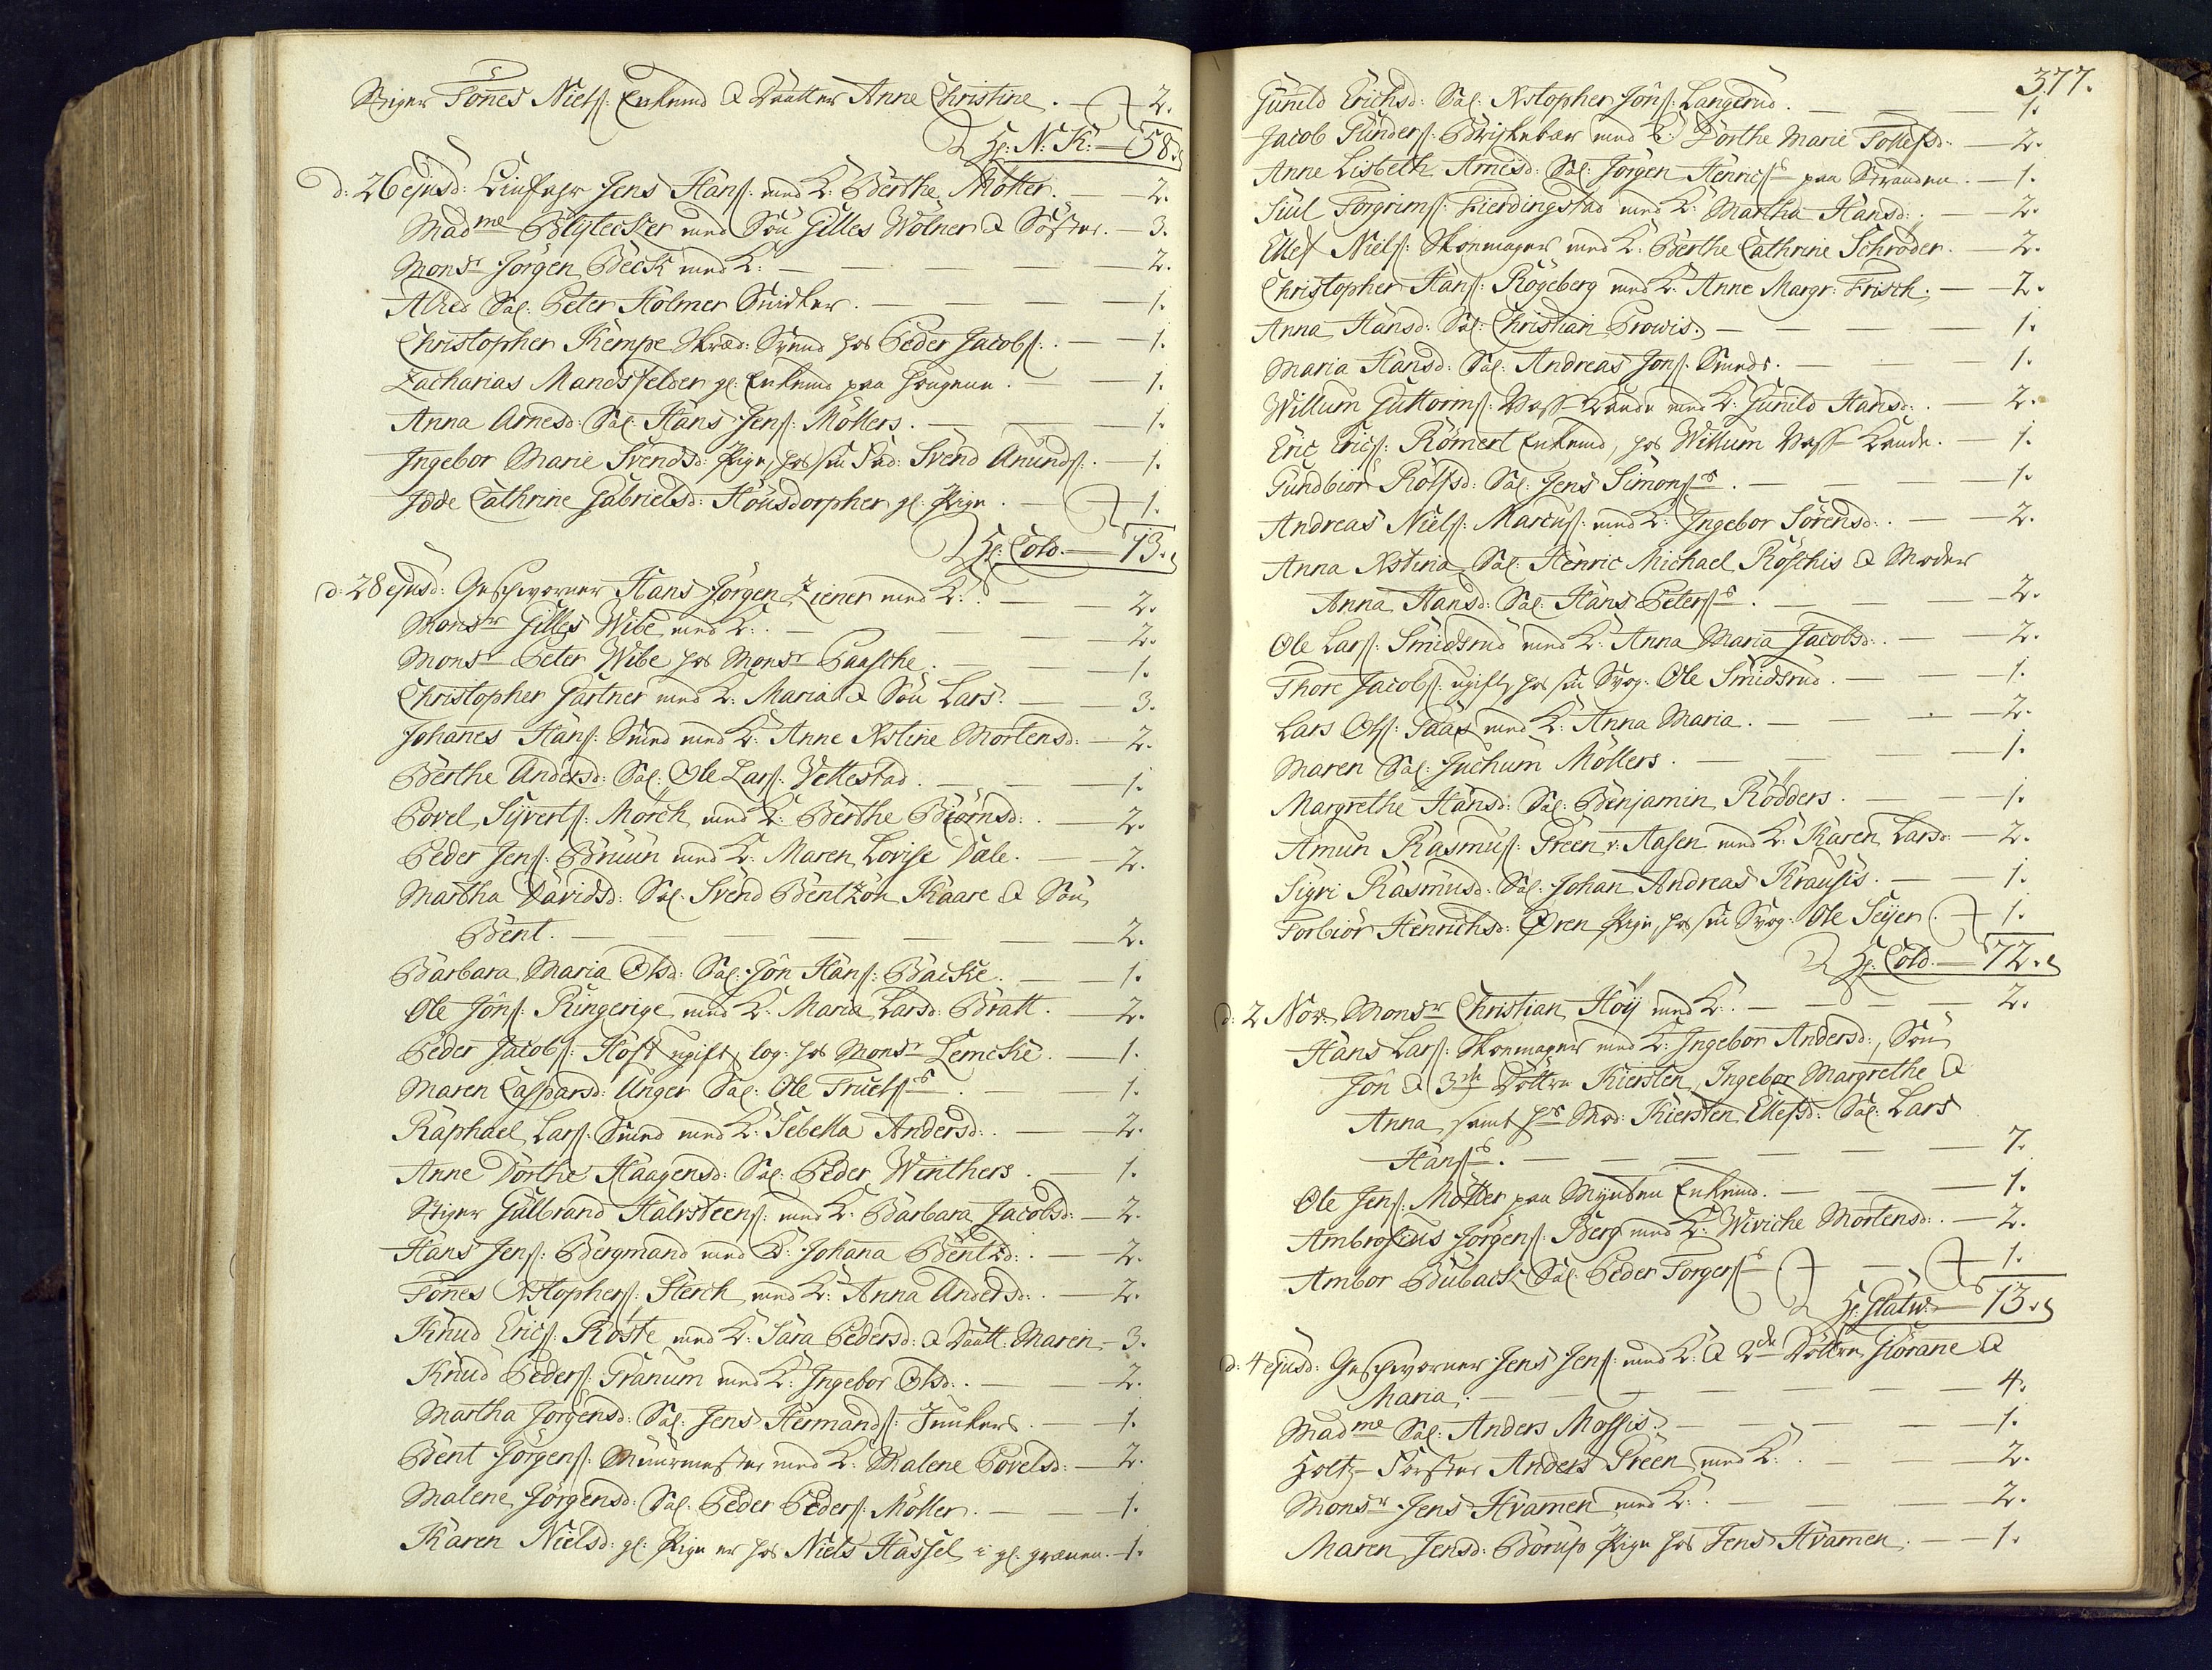 Stiger Tönes Niels: Enkemd & Daatter Anne Christine. — 2.
Hr: N: K: — 58.
d: 26 ejusd: Jens Hans: med K: Berthe Møller. — 2.
Madme Blytecker med Søn Gilles Wölner & Søster. — 3.
Monsr Jörgen Beck med K: — 2.
Alhed Sal: Peter Holmer Snidker. — 1.
Christopher Kempe Skræd: Svend hos Peder Jacobs:. — 1.
Zacharias Mandsfelder gl: Enkemd paa Haugene. — 1.
Anna Arnesd: Sal: Hans Jens: Möllers. — 1.
Ingebor Marie Svendsd: Pige, hos sin Fad: Svend Anunds:. — 1.
Idde Cathrine Gabrielsd: Hönsdorpher gl: Pige. — 1.
Hr: Cold. — 13.
d: 28 ejusd: Geschworner Hans Jörgen Ziener med K: — 2.
Monsr Gilles Wibe med K: — 2.
Monsr Peter Wibe hos Monsr Paasche. — 1.
Christopher Gartner med K: Maria & Søn Lars. — 3.
Johanes Hans: Smed med K: Anne Xstine Mortensd: — 2.
Berthe Andersd: Sal: Ole Lars: Vettestad. — 1.
Povel Syverts: Mörch med K: Berthe Biörnsd: — 2.
Peder Jens: Bruun med K: Maren Lovise Dale. — 2.
Martha Davidsd: Sal: Svend Bentzön Kaare & Søn
Bent. — 2.
Barbara Maria Olsd: Sal: Jön Hans: Backe. — 1.
Ole Jöns: Ringerige med K: Maria Larsd: Bratt. — 2.
Peder Jacobs: Höft ugift, log: hos Monsr Lemcke. — 1.
Maren Caspersd: Unger Sal: Ole Truelss. — 1.
Raphael Lars: Smed med K: Sebella Andersd: — 2.
Anne Dorthe Haagensd: Sal: Peder Winthers. — 1.
Stiger Gulbrand Halvsteens: med K: Barbara Jacobsd: — 2.
Hans Jens: Bergmand med K: Johana Bentzd: — 2.
Tönes Xstophers: Sterch med K: Anna Andersd: — 2.
Knud Erics: Roste med K: Sara Pedersd: & Daatt: Maren — 3.
Knud Peders: Granum med K: Ingebor Olsd: — 2.
Martha Jörgensd: Sal: Jens Hermands: Junkers. — 1.
Bent Jörgens: Muurmester med K: Malene Povelsd: — 2.
Malene Jörgensd: Sal: Peder Peders: Möller. — 1.
Karen Nielsd: gl: Pige er hos Niels Hassel i gl: — 1.
377.
Gunild Erichsd: Sal: Xstopher Jöns: Langerud. — 1.
Jacob Gunders: med K: Dorthe Marie Tollefsd: — 2.
Anne Lisbeth Arnesd: Sal: Jörgen Henrics paa Stranden. — 1.
Juul Torgrims: Fierdingstad med K: Martha Hansd: — 2.
Ellef Niels: Skomager med K: Berthe Cathrine Schröder. — 2.
Christopher Hans: Rögeberg med K: Anne Margr: Frisch. — 2.
Anna Hansd: Sal: Christian Prowis. — 1.
Maria Hansd: Sal: Andreas Jons: Smeds. — 1.
Willum Guttorms: med K: Gunild Hansd: — 2.
Eric Erics: Römert Enkemd, hos Willum — 1.
Gundbiör Rolfsd: Sal: Jens Simons. — 1.
Andreas Niels: Marcus: med K: Ingebor Sörensd: — 2.
Anna Xstina Sal: Henric Michael Röschis & Moder
Anna Hansd: Sal: Hans Peters. — 2.
Ole Lars: Smidsrud med K: Anna Maria Jacobsd: — 2.
Thore Jacobs: ugift, hos sin Svog: Ole Smidsrud. — 1.
Lars Ols: Saas med K: Anna Maria. — 2.
Maren Sal: Juchum Möllers. — 1.
Margrethe Hansd: Sal: Benjamin Rödders. — 1.
Amun Rasmus: Green v: Aasen med K: Karen Larsd: — 2.
Sigri Rasmusd: Sal: Johan Andreas Krausis. — 1.
Torbiör Henrichsd: Øren Pige, hos sin Svog: Ole Seyer. — 1.
Hr: Cold. — 72.
d: 2 Nov: Monsr Christian Höÿ med K: — 2.
Hans Lars: Skomager med K: Ingebor Andersd:, Søn
Jön & 3de Döttre Kiersten, Ingebor Margrethe &
Anna, samt hs Mod: Kiersten Ellefsd: Sal: Lars
Hans. — 7.
Ole Jens: Møller paa Mynten Enkemd. — 1.
Ambrosius Jörgens: Berg med K: Wiviche Mortensd: — 2.
Ambor Buback Sal: Peder Torgers — 1.
Hr: Glatw: — 13.
d: 4 ejusd: Geschworner Jens Jens: med K: & 2de Döttre Görane &
Maria: — 4.
Madme Sal: Anders Mossis. — 1.
Holtz-Forster Anders Green med K: — 2.
Monsr Jens Hvamen med K: — 2.
Maren Jensd: Borup Pige hos Jens Hvamen. — 1.